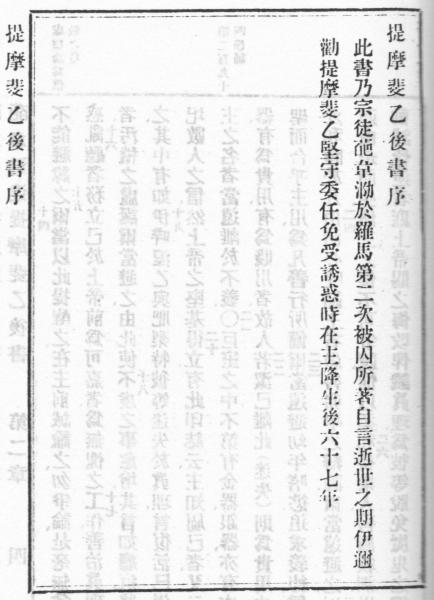 提摩斐乙後書序
此書乃宗徒葩韋泐於羅馬第二次被囚所著自言逝世之期伊邇
勸提摩斐乙堅守委任免受誘惑時在主降生後六十七年
提摩斐乙後書序